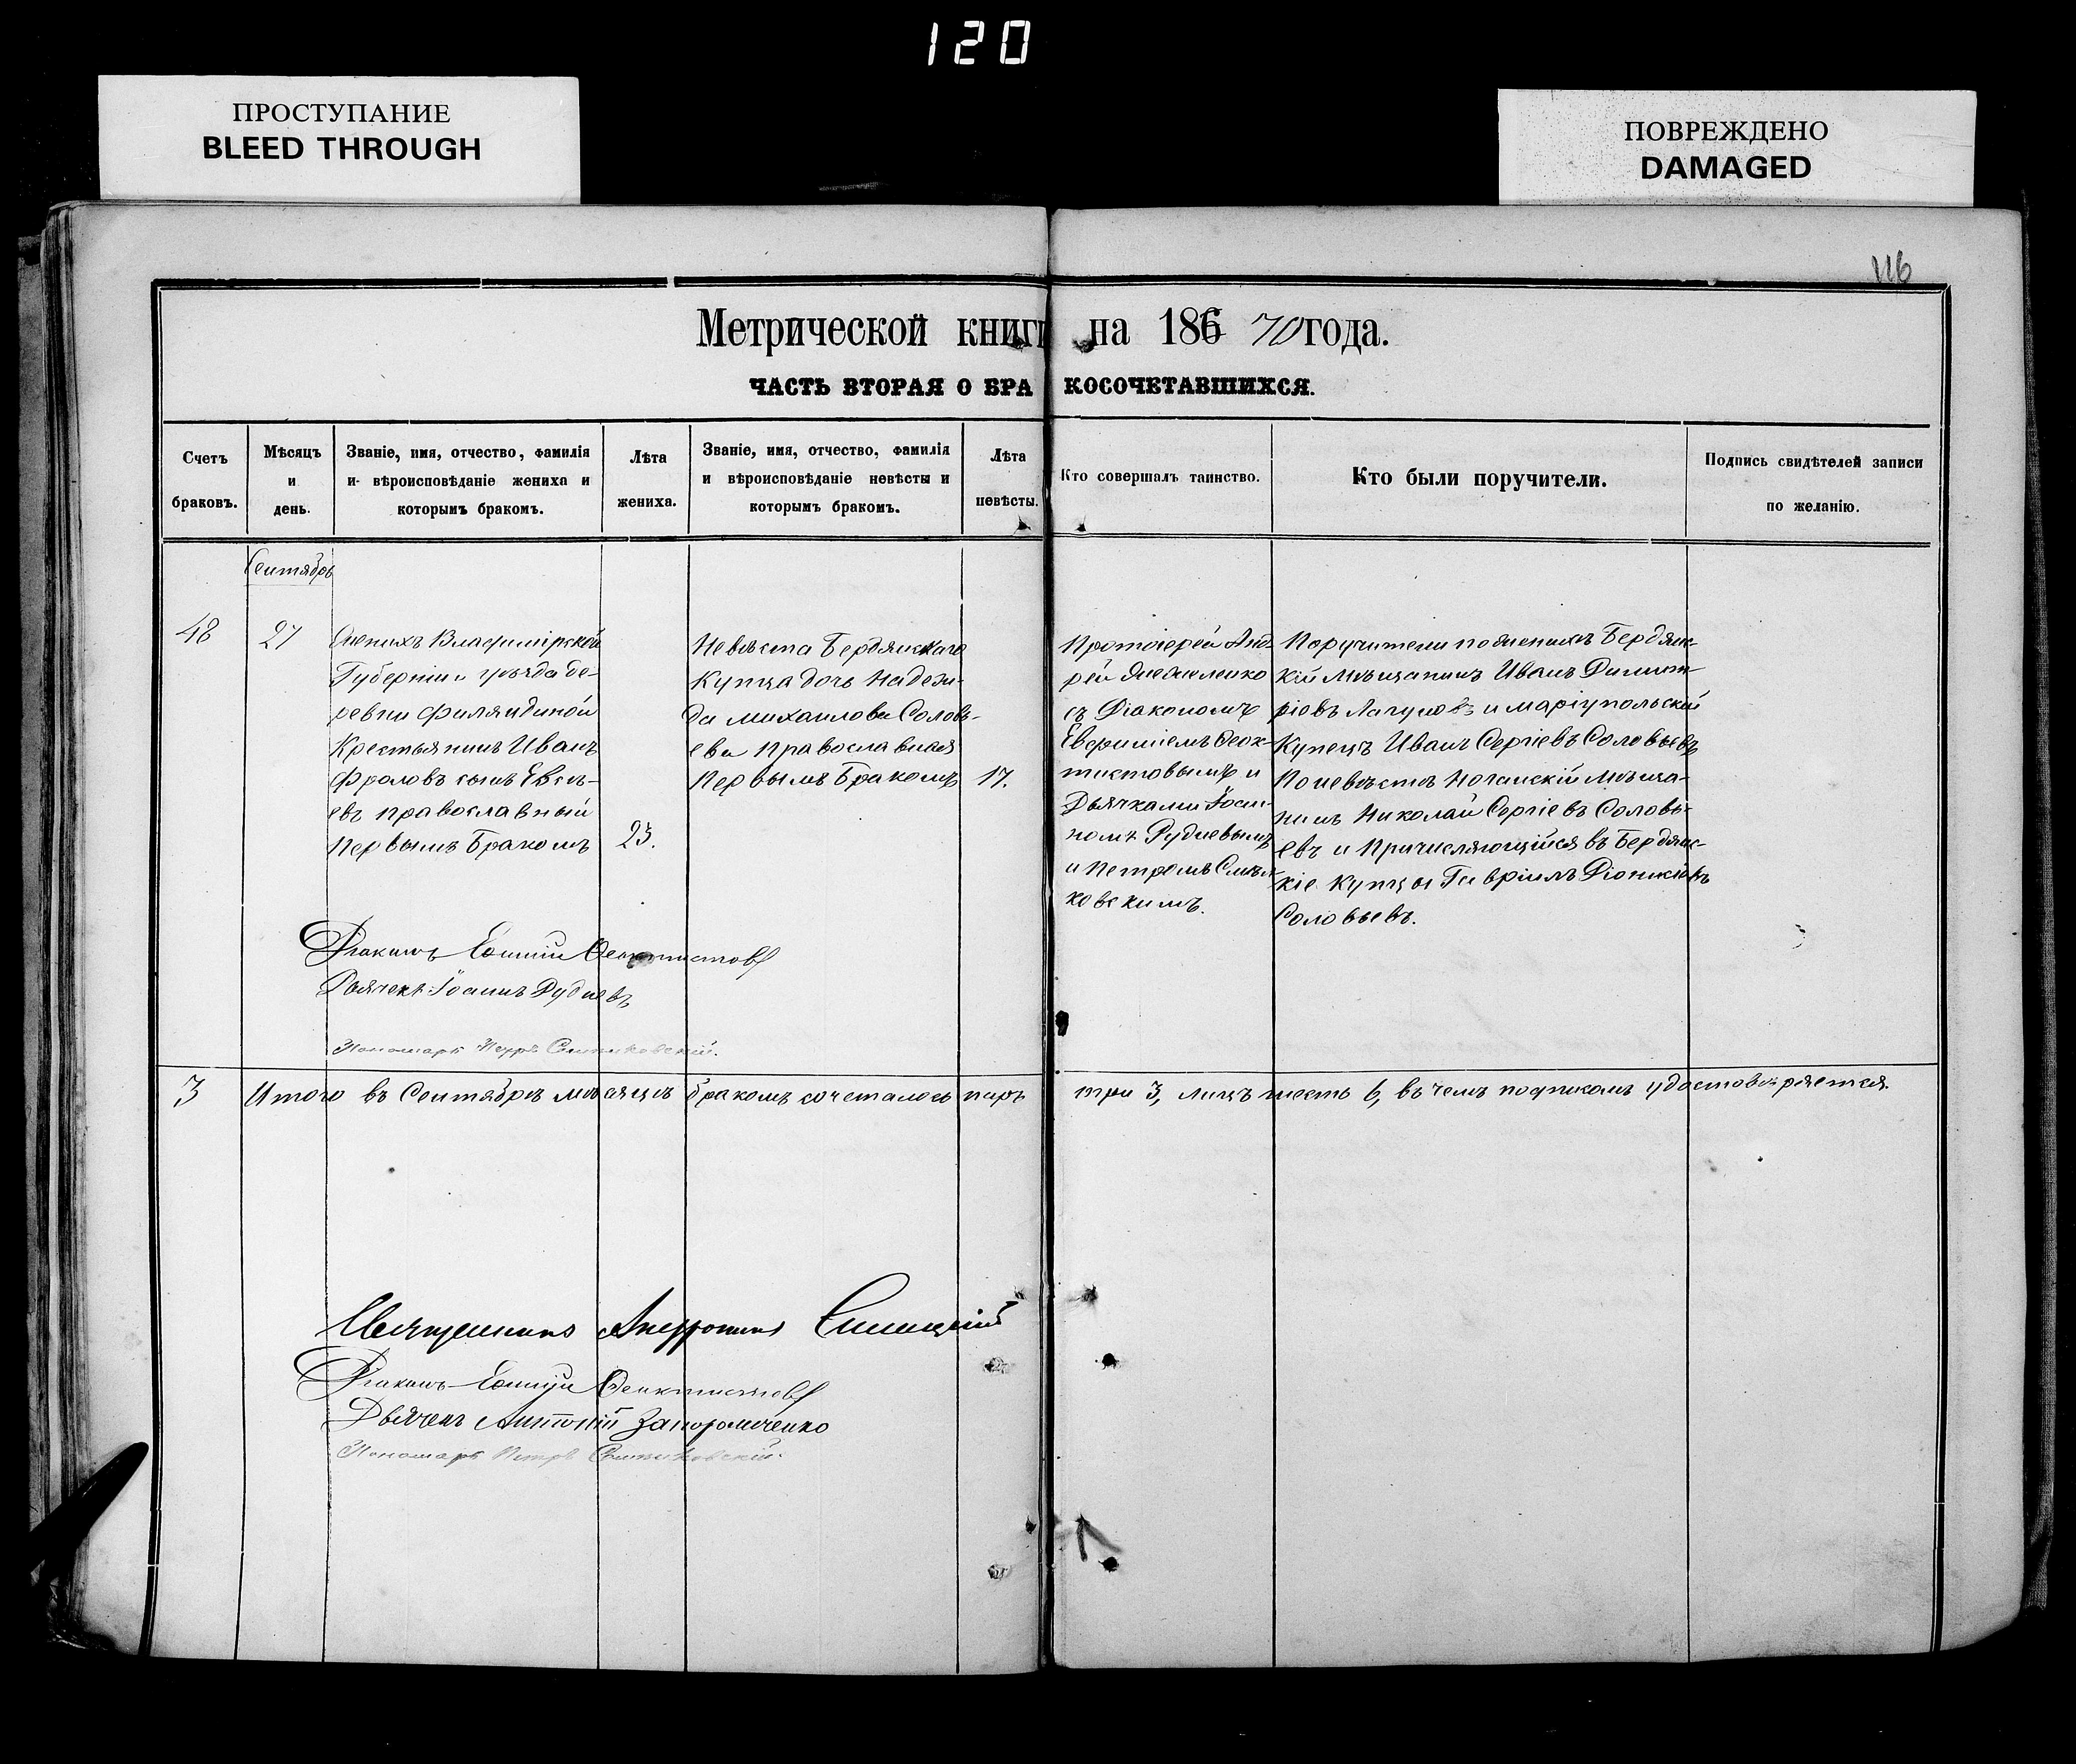 120
ПРОСТУПАНИЕ
BLEED THROUGH
ПОВРЕЖДЕНО
DAMAGED
116
Метрической книги на 186 70 года.
ЧАСТЬ ВТОРАЯ О БРАКОСОЧЕТАВШИХСЯ.
Счетъ
браковъ.
Мѣсяцъ
и
день.
Званіе, имя, отчество, фамилія
и вѣроисповѣданіе жениха и
которымъ бракомъ.
Лѣта
жениха.
Званіе, имя, отчество, фамилія
и вѣроисповѣданіе невѣсты и
которымъ бракомъ.
Лѣта
невѣсты.
Кто совершалъ таинство.
Кто были поручители.
Подпись свидѣтелей записи
по желанію.
Сентябрь
48
27
Женихъ Владимірской
Губерніи уѣзда де-
ревни Филяндиной
Крестьянинъ Иванъ
Фроловъ сынъ Евсѣ-
евъ православный
Первымъ Бракомъ
23.
Невѣста Бердянскаго
Купца дочь Надеж-
да Михаилова Соловь-
ева Православная
Первымъ Бракомъ
17.
Протоіерей Анд-
рей
съ Діакономъ
Евфиміемъ Ѳеок-
тистовымъ и
Дьячками Іоан-
номъ Рудневымъ
и Петромъ
ковскимъ.
Поручители по женихѣ Бердянс-
кій Мѣщанинъ Иванъ Димит-
ріевъ и Маріупольскій
Купецъ Иванъ Сергіевъ Соловьевъ
По невѣстѣ Ногайскій Мѣща-
нинъ Николай Сергіевъ Соловь-
евъ и Причисляющійся въ Бердянс-
кіе Купцы Гавріилъ Діонисіевъ
Соловьевъ.
Діаконъ Ѳеоктистовъ
Дьячекъ Іоаннъ Рудневъ
Пономарь Петръ
3
Итого въ Сентябрѣ мѣсяцѣ бракомъ сочеталось паръ три 3, лицъ шесть 6, въ чемъ подписомъ удостовѣряется.
Священникъ Синицкій
Діаконъ Ѳеоктистовъ
Дьячекъ Антоній Запорожченко
Пономарь Петръ